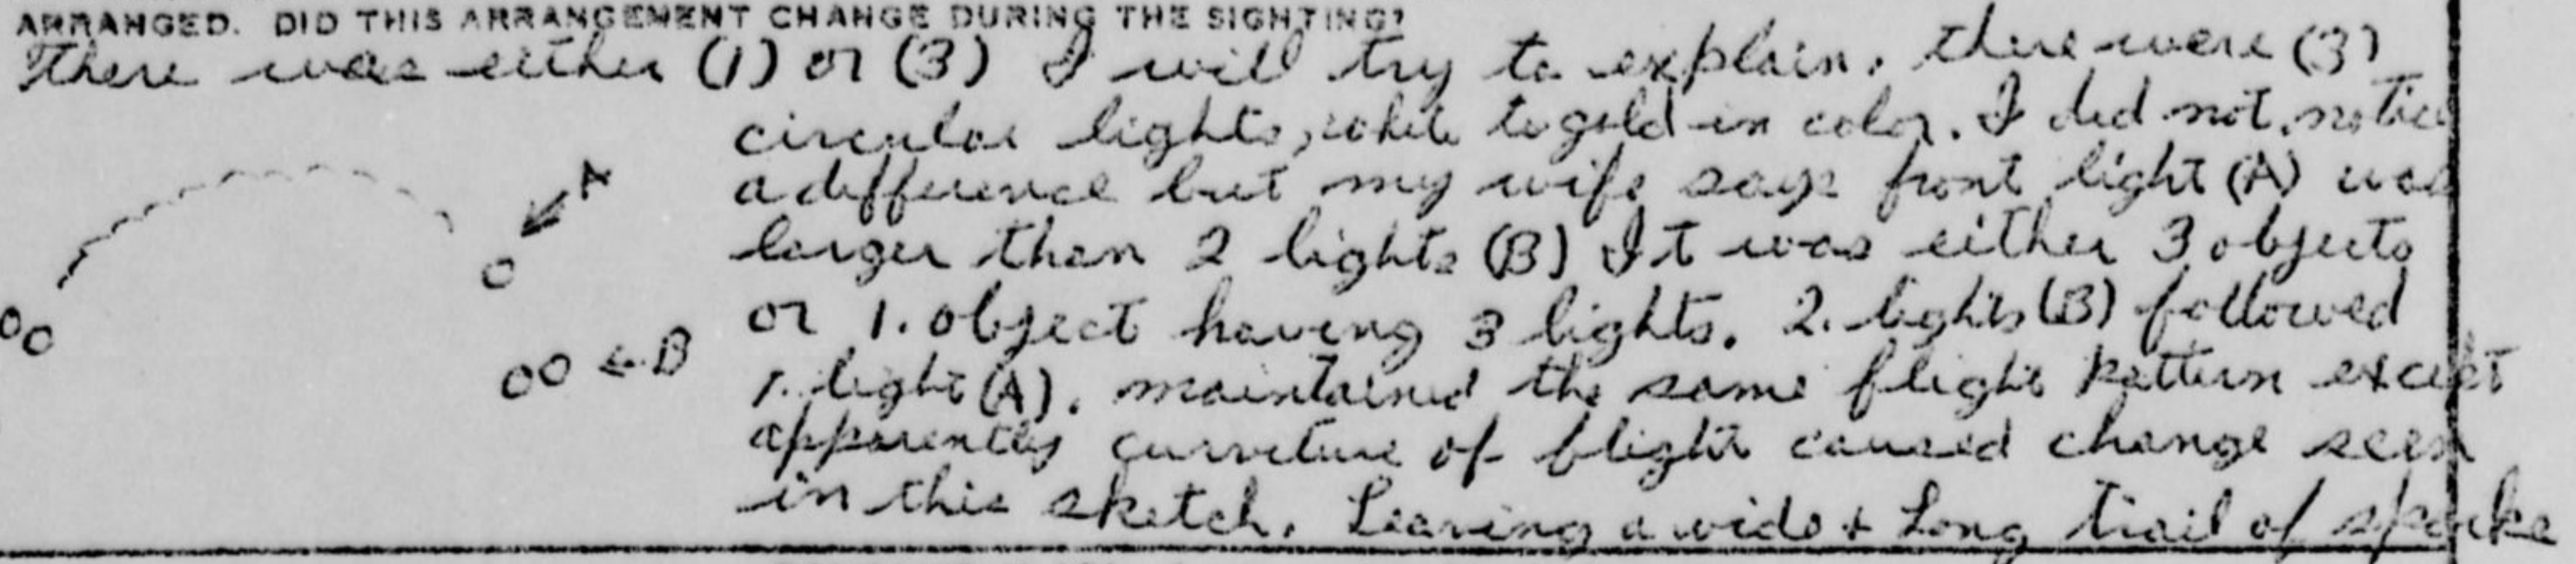 ARRANGED. DID THIS ARRANGEMENT CHANGE DURING THE SIGHTING?
There was either (1) or (3) I will try to explain, there were (3)
circular lights, white to gold in color. I did not notice
a difference but my wife says front light (A) was
larger than 2 lights (B) It was either 3 objects
or 1. object having 3 lights. 2. lights (B) followed
1. light (A). maintained the same flight pattern except
apparently curveture of flight caused change seen
in this sketch. Leaving a wide + Long trail of sparks
A
B